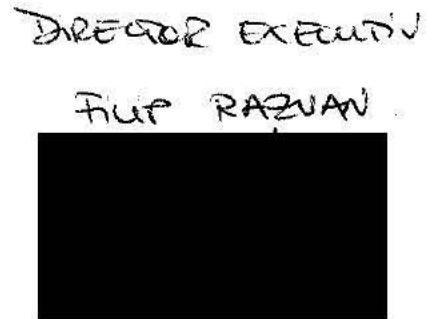 DIRECTOR EXECUTIV
FILIP RAZVAN